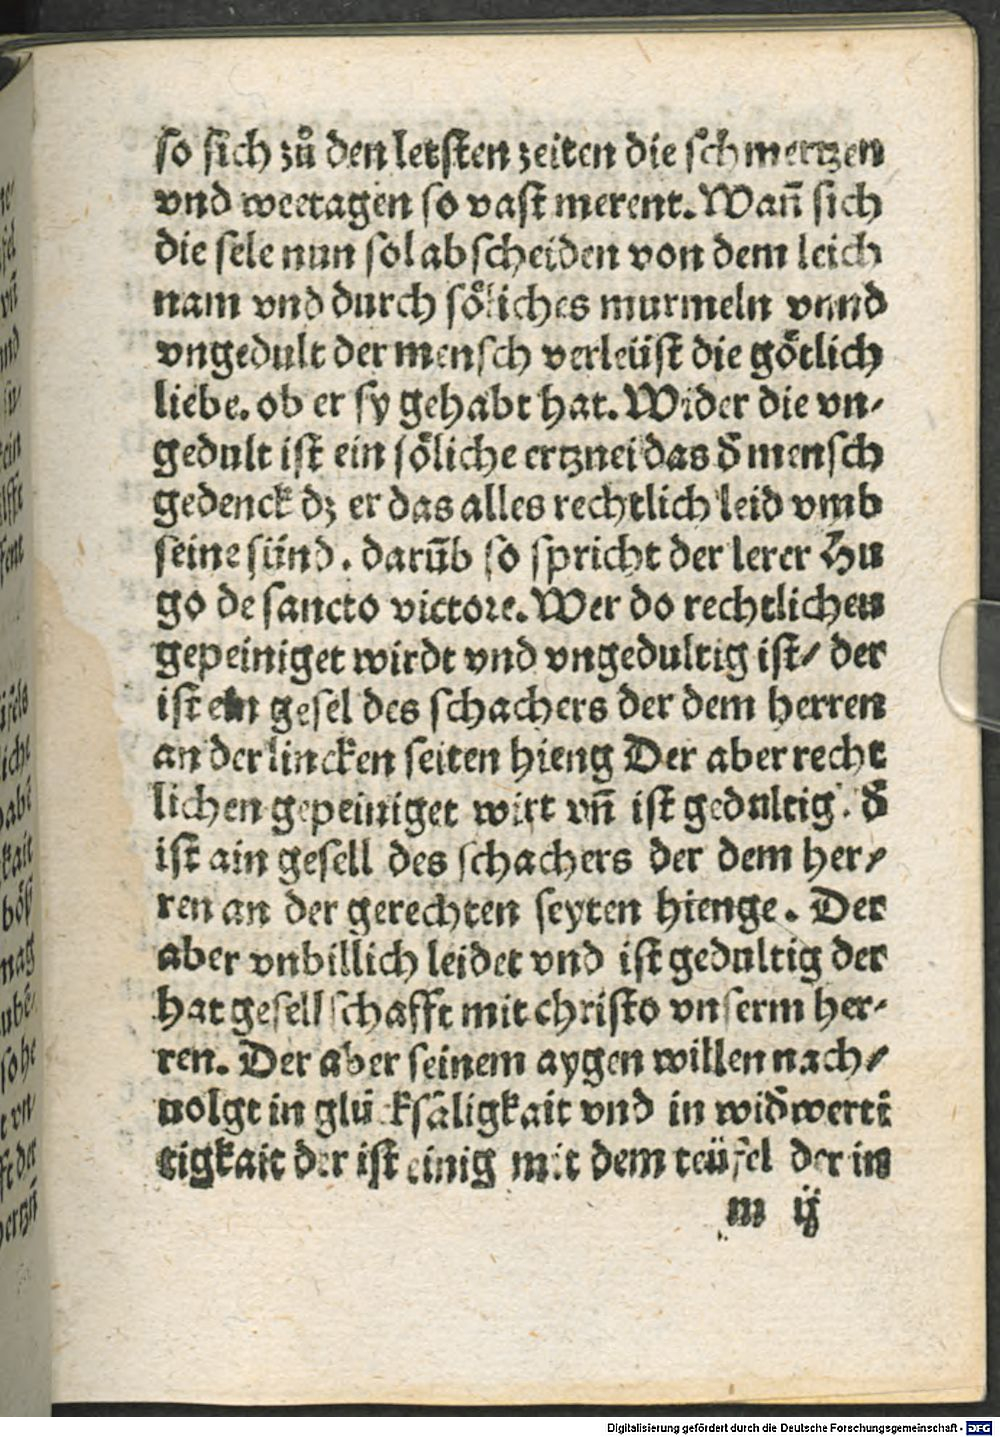 so sich zů den letsten zeiten die schmertzen
vnd weetagen so vast merent. Wañ sich
die sele nun sol ab scheiden von dem leich
nam vnd durch soͤliches murmeln vnnd
vngedult der mensch verleüst die goͤtlich
liebe. ob er sy gehabt hat. Wider die vn⸗
gedult ist ein soͤliche ertznei das đ mensch
gedenck dz er das alles rechtlich leid vmb
seine sünd. darūb so spricht der lerer Hu
go de sancto victore. Wer do rechtlichen
gepeiniget wirdt vnd vngedultig ist/ der
ist ein gesel des schachers der dem herren
an der lincken seiten hieng Der aber recht
lichen gepeiniget wirt vñ ist gedultig. đ
ist ain gesell des schachers der dem her⸗
ren an der gerechten seyten hienge. Der
aber vnbillich leidet vnd ist gedultig der
hat gesellschafft mit christo vnserm her⸗
ren. Der aber seinem aygen willen nach⸗
uolgt in glücksäligkait vnd in widwerti
tigkait der ist einig mit dem teüfel der in
m ij
Digitalisierung gefördert durch die Deutsche Forschungsgemeinschaft - DFG